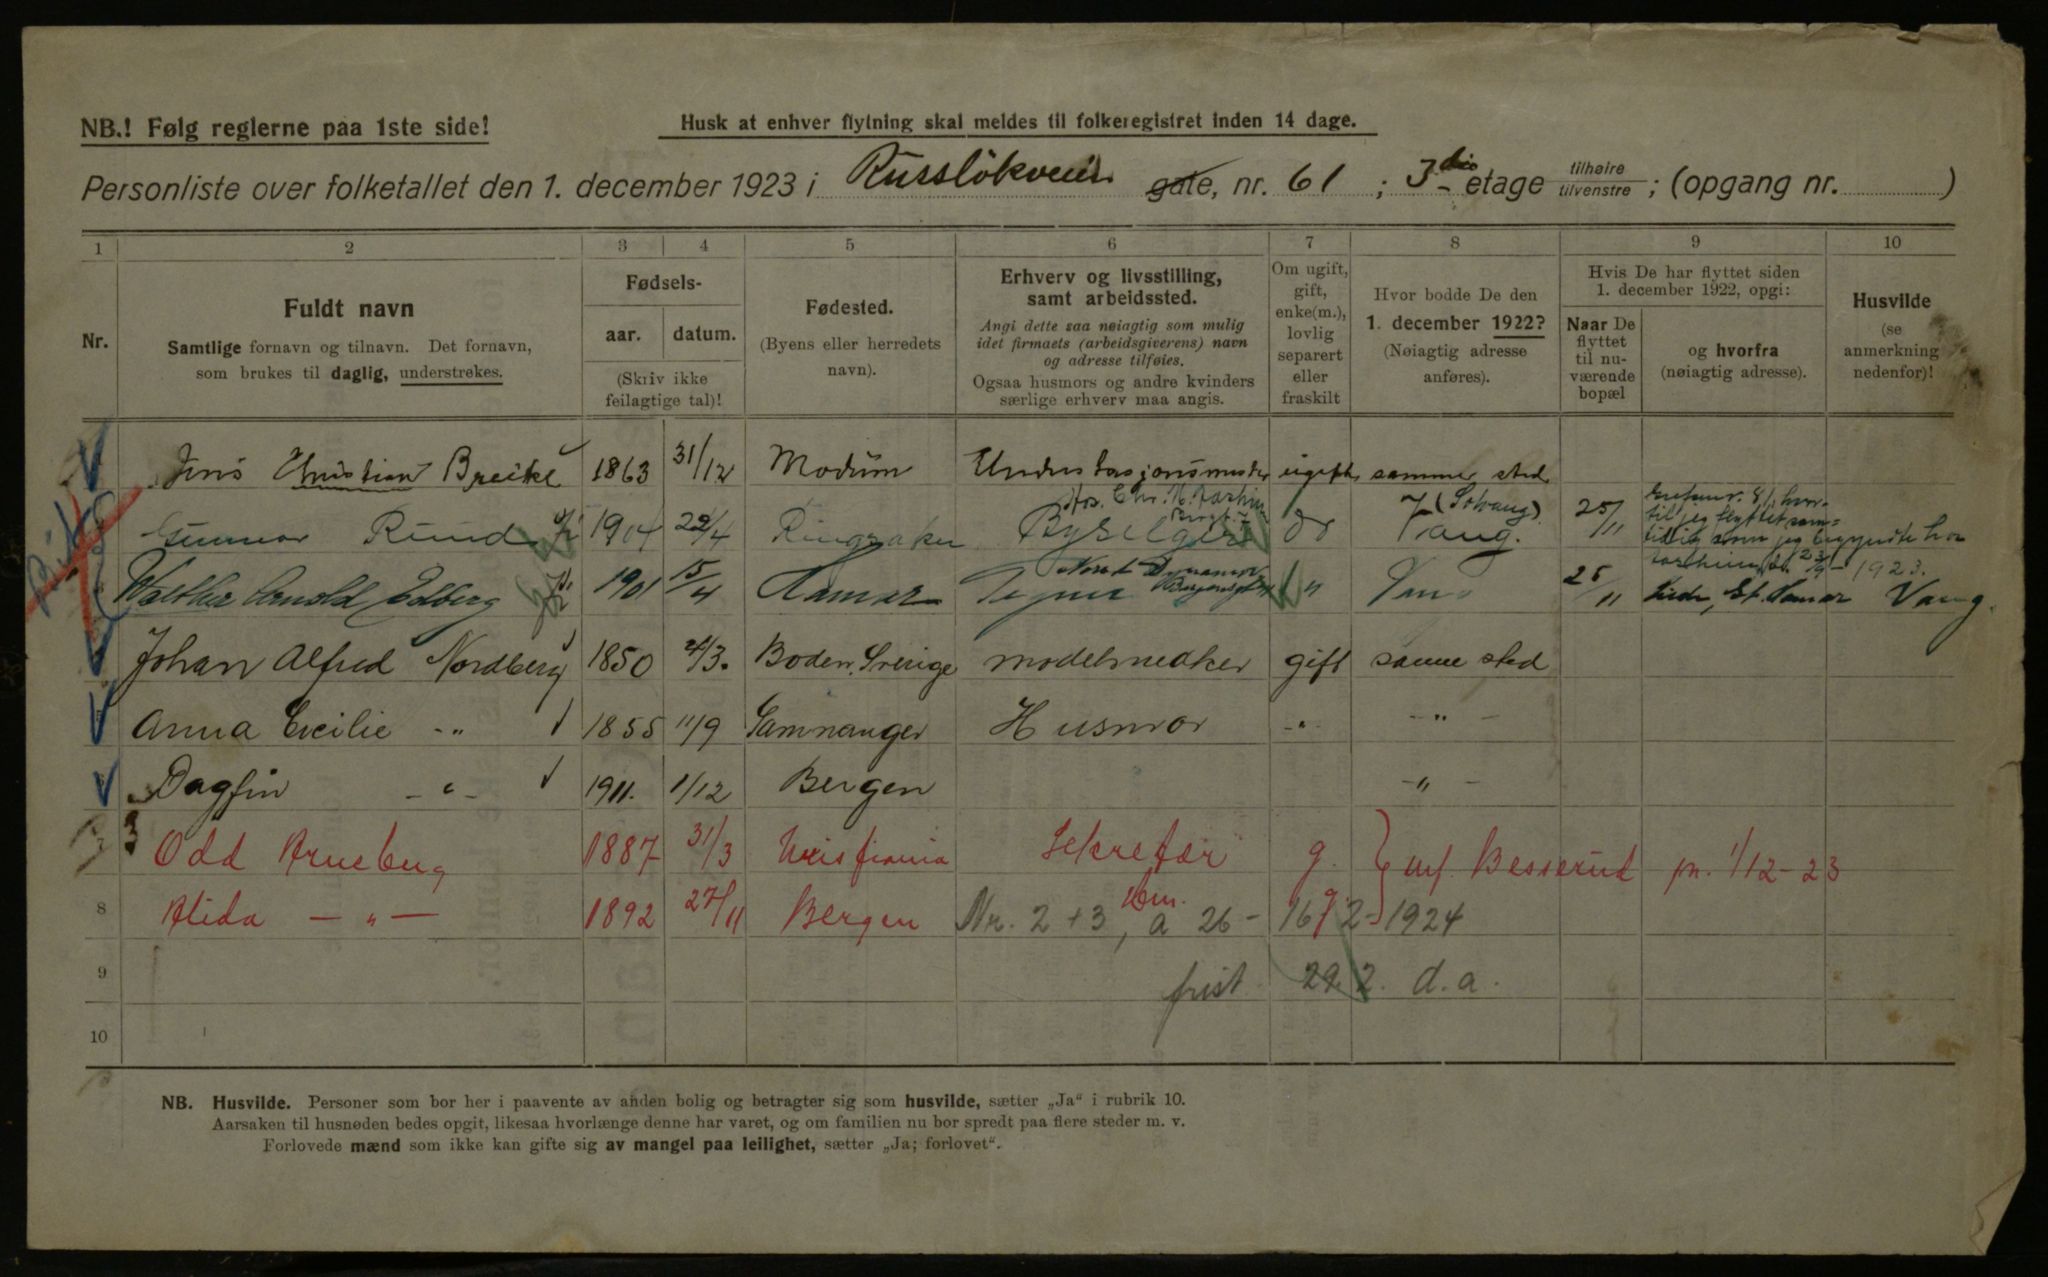 NB.! Følg reglerne paa 1ste side!
Husk at enhver flytning skal meldes til folkeregistret inden 14 dage.
Personliste over folketallet den 1. december 1923 i Russløkveien gate, nr. 61 ; 3die etage tilhøire tilvenstre ; (opgang nr. )
1 2 3 4 5 6 7 8 9 10
Nr.
Fuldt navn
Samtlige fornavn og tilnavn. Det fornavn,
som brukes til daglig, understrekes.
Fødsels-
aar. datum.
(Skriv ikke
feilagtige tal)!
Fødested.
(Byens eller herredets
navn).
Erhverv og livsstilling,
samt arbeidssted.
Angi dette saa nøiagtig som mulig
idet firmaets (arbeidsgiverens) navn
og adresse tilføies.
Ogsaa husmors og andre kvinders
særlige erhverv maa angis.
Om ugift,
gift,
enke(m.),
lovlig
separert
eller
fraskilt
Hvor bodde De den
1. december 1922?
(Nøiagtig adresse
anføres).
Hvis De har flyttet siden
1. december 1922, opgi:
Naar De
flyttet
til nu-
værende
bopæl
og hvorfra
(nøiagtig adresse).
Husvilde
(se
anmerkning
nedenfor)!
Jens Christian Breike 1863 31/12 Modum ugift samme sted
Gunnar Ruud 1904 22/4 Ringsaker do Vang. (Solvang) 25/11
Walther Arnold Edberg 1901 15/4 Hamar " Vang 25/11 Vang.
Johan Alfred Nordberg 1850 4/3. Boden. Sverige modelsnedker gift samme sted
Anna Cecilie -"- 1855 11/9 Samnanger Husmor -"- -"-
6 Dagfin -"- 1911. 1/12 Bergen -"-
7 Odd Arneberg 1887 31/3 Kristiania Sekretær g. Besserud 1/12-23
8 Alida -"- 1892 27/11 Bergen Hm. g
Nr. 2 + 3, a 26- 16/2-1924
9 frist 29/2. d.a.
10
NB. Husvilde. Personer som bor her i paavente av anden bolig og betragter sig som husvilde, sætter „Ja“ i rubrik 10.
Aarsaken til husnøden bedes opgit, likesaa hvorlænge denne har varet, og om familien nu bor spredt paa flere steder m. v.
Forlovede mænd som ikke kan gifte sig av mangel paa leilighet, sætter „Ja; forlovet“.